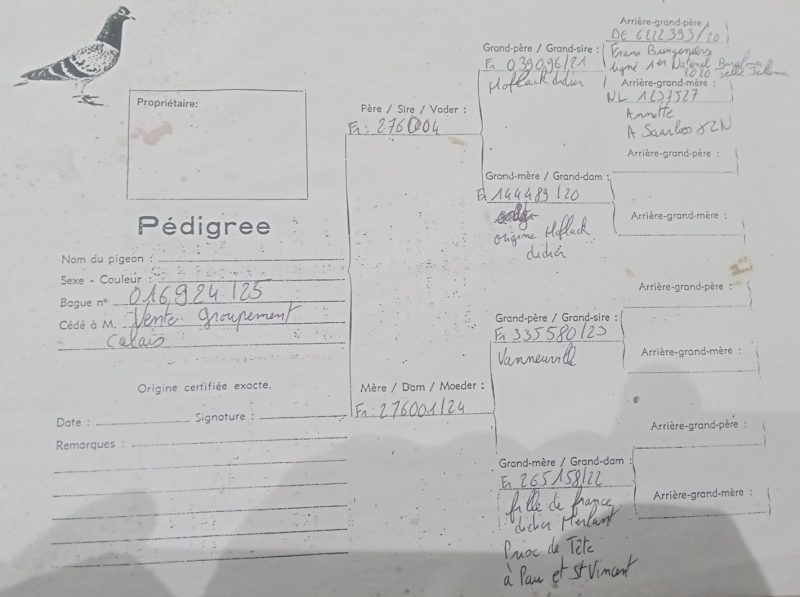 Propriétaire:
Pédigree
Nom du pigeon :
Sexe - Couleur :
Bague n° 016924 125
Cédé à M. Vente groupement
Calais
Origine certifiée exacte.
Date : Signature :
Remarques :
Père / Sire / Vader :
Fr: 276004
Mère / Dam / Moeder :
Fr: 276001/24
Grand-père / Grand-sire :
Fr 039096/21
Hoflack didier
Grand-mère / Grand-dam :
Fr 144489/20
origine Hoflack
didier
Grand-père / Grand-sire :
Fr 335580/23
Vanneuville
Grand-mère / Grand-dam :
Fr 265158/22
fille de france
didier
Prix de Tête
à Pau et St Vincent
Arrière-grand-père :
DE 6222393/20
ligné 1er
2020
Arrière-grand-mère :
NL 1237527
A Saarloos
Arrière-grand-père :
Arrière-grand-mère :
Arrière-grand-père :
Arrière-grand-mère :
Arrière-grand-père :
Arrière-grand-mère :